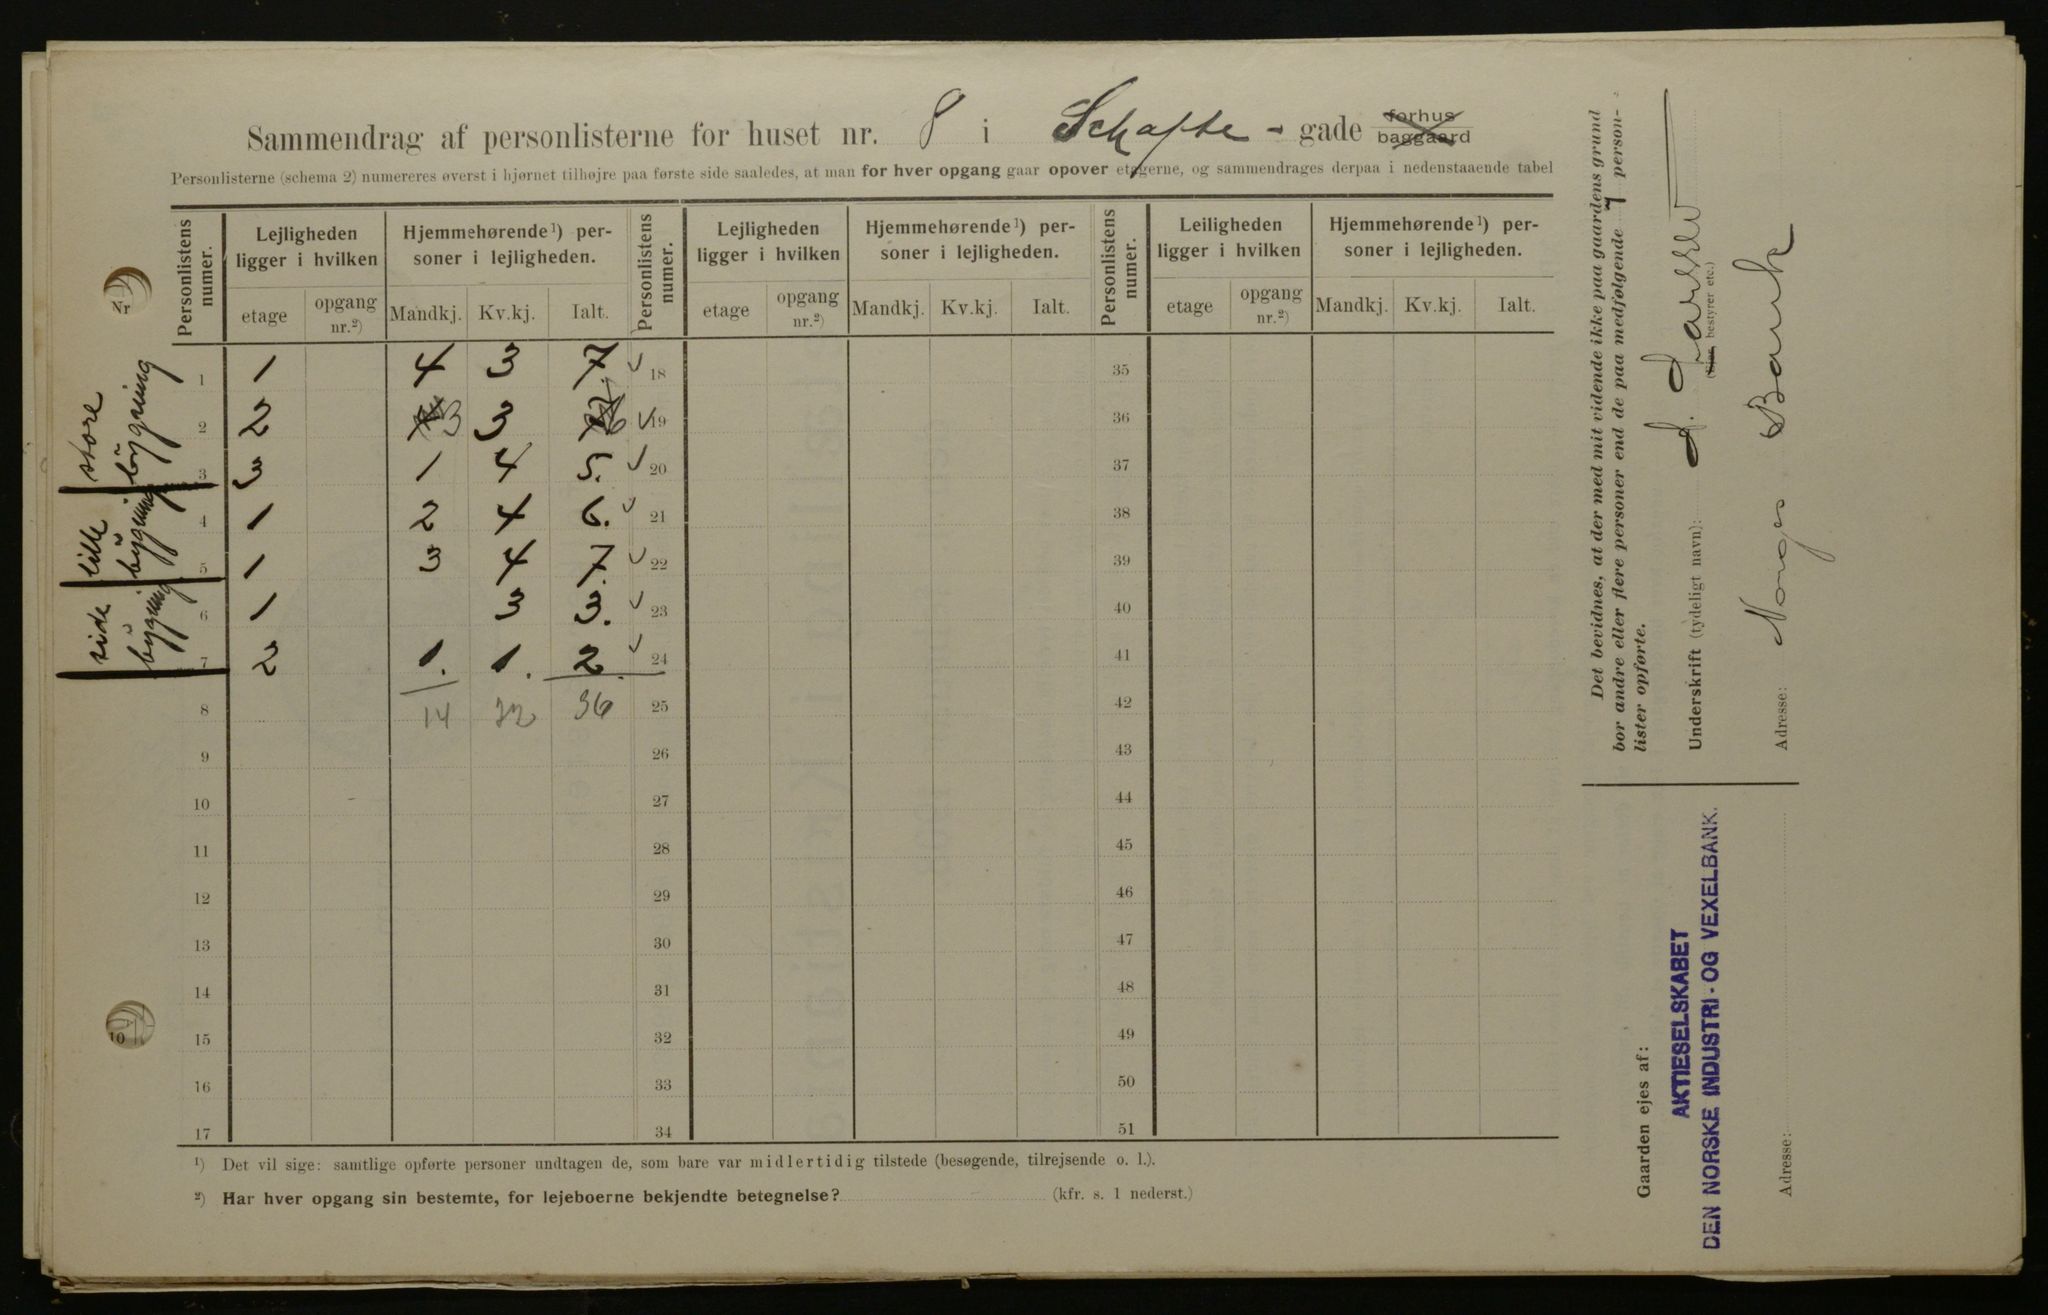 Sammendrag af personlisterne for huset nr. 8 i Schafte - gade forhus baggaard
Personlisterne (schema 2) numereres øverst i hjørnet tilhøjre paa første side saaledes, at man for hver opgang gaar opover etagerne, og sammendrages derpaa i nedenstaaende tabel
Personlistens numer. Lejligheden ligger i hvilken Hjemmehørende ¹) personer i lejligheden. Personlistens numer. Lejligheden ligger i hvilken Hjemmehørende ¹) personer i lejligheden. Personlistens numer. Leiligheden ligger i hvilken Hjemmehørende ¹) personer i lejligheden.
etage opgang nr.²) Mandkj. Kv.kj. Ialt. etage opgang nr.²) Mandkj. Kv.kj. Ialt. etage opgang nr.²) Mandkj. Kv.kj. Ialt.
store bygning
lille bygning
side bygning
Nr
10
1 1 4 3 7 18 35
2 2 3 3 6 19 36
3 3 1 4 5. 20 37
4 1 2 4 6. 21 38
5 1 3 4 7. 22 39
6 1 3 3. 23 40
7 2 1. 1. 2. 24 41
8 14 22 36 25 42
9 26 43
10 27 44
11 28 45
12 29 46
13 30 47
14 31 48
15 32 49
16 33 50
17 34 51
¹) Det vil sige: samtlige opførte personer undtagen de, som bare var midlertidig tilstede (besøgende, tilrejsende o. l.).
²) Har hver opgang sin bestemte, for lejeboerne bekjendte betegnelse? (kfr. s. 1 nederst.)
Det bevidnes, at der med mit vidende ikke paa gaardens grund
bor andre eller flere personer end de paa medfølgende 7 person-
lister opførte.
Underskrift (tydeligt navn): Larsen
(Ejer, bestyrer etc.)
Adresse: Norges Bank
Gaarden ejes af:
AKTIESELSKABET
DEN NORSKE INDUSTRI- OG VEXELBANK.
Adresse: